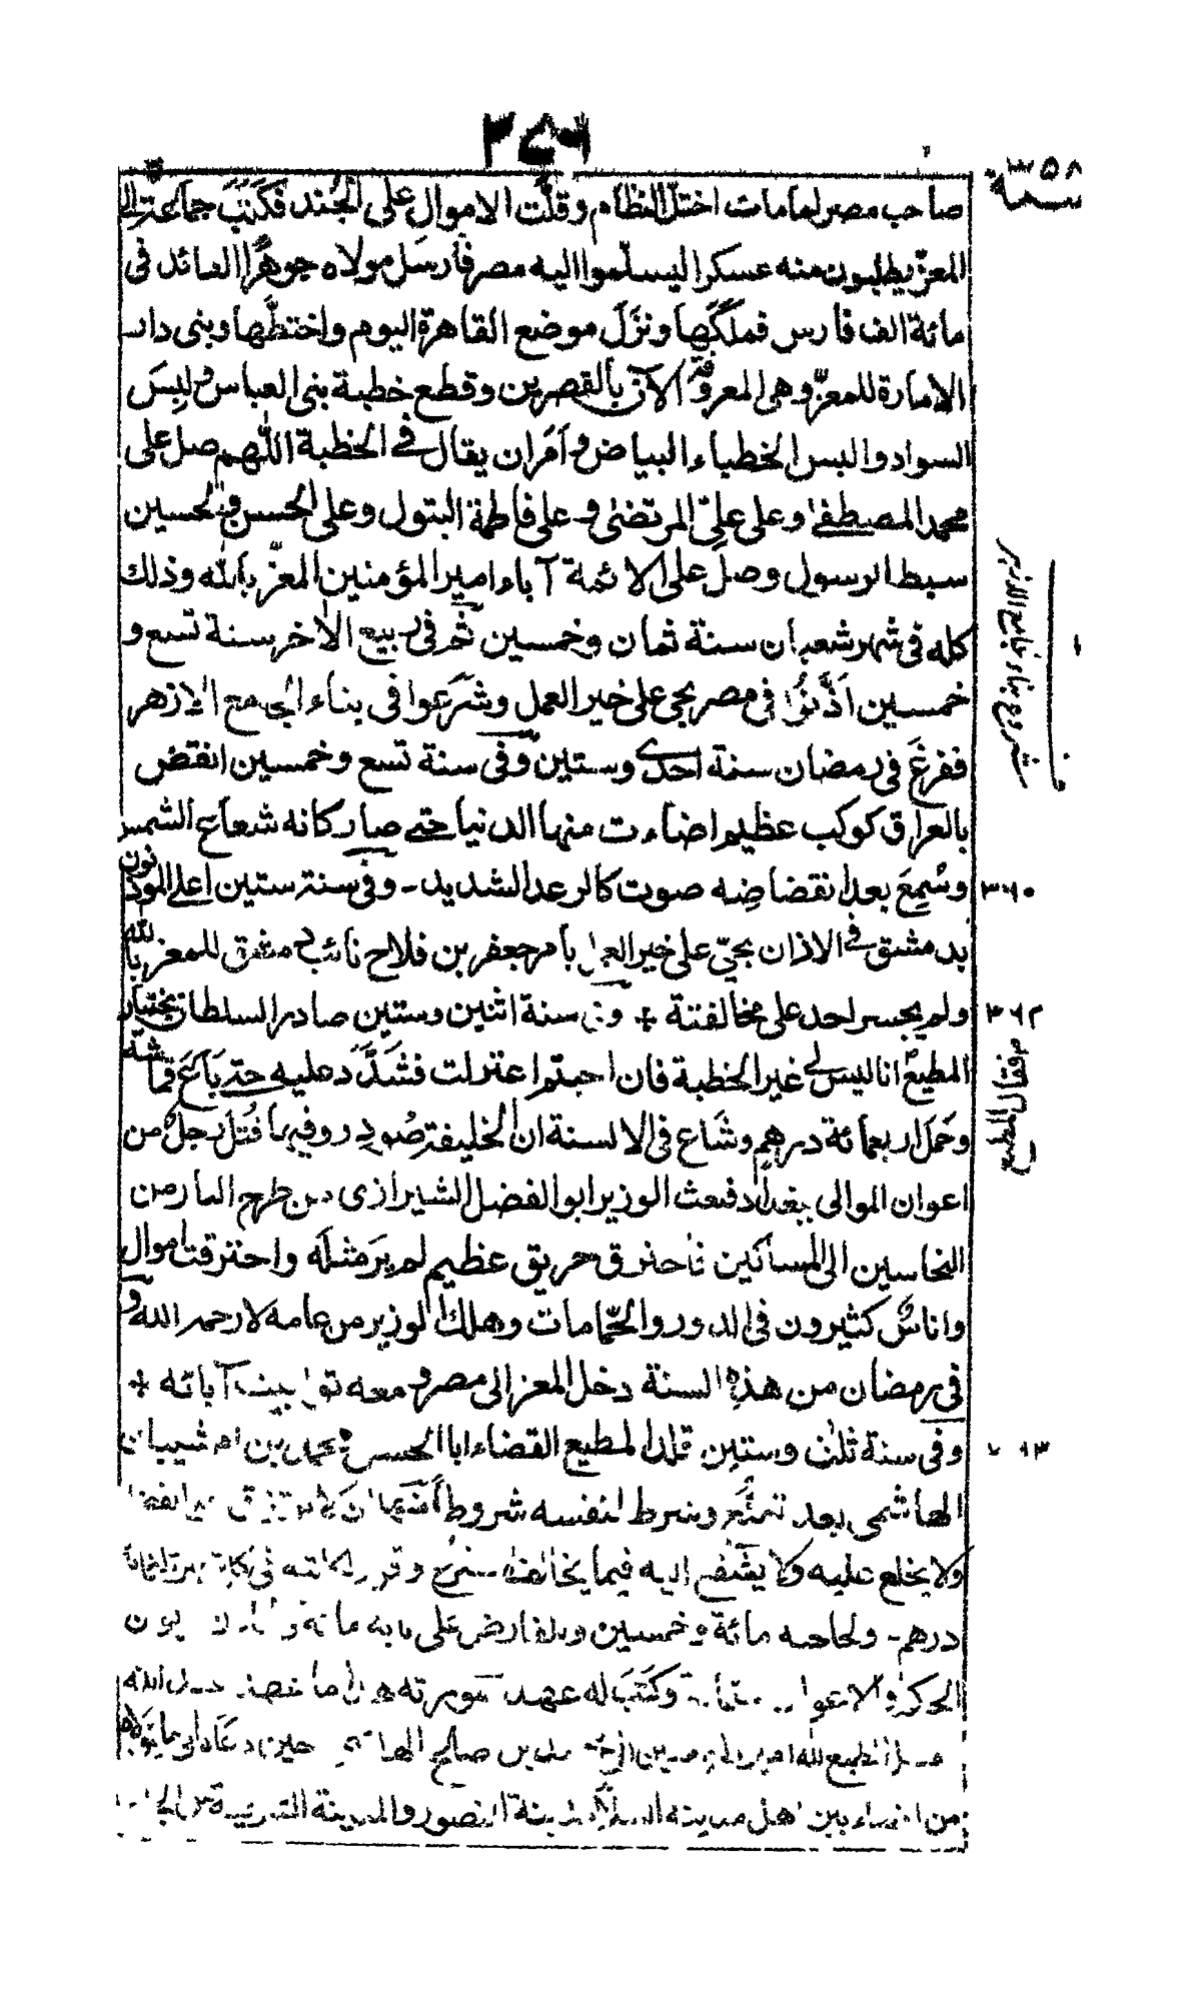 ٢٧٦
سنة ٣٥٨
صاحب مصر لما مات اختل النظام وقلّت الاموال على الجُند فكَتَبَ جماعة الى
المعزّ يطلبون منه عسكرا ليسلّموا اليه مصر فأرسَل مولاه جوهرًا القائد فى
مائة الف فارس فملكَها ونزَل موضع القاهرة اليوم واختطّها وبنى دار
الامارة للمعزّ وهى المعروفة الآن بالقصرين وقطع خطبة بنى العباس ولبِسَ
السواد والبس الخطباء البياض وأمَر ان يقال فى الخطبة اللهم صل على
محمد المصطفىٰ وعلى علىّ المرتضىٰ وعلى فاطمة البتول وعلى الحسن والحسين
سبط الرسول وصلّ على الائمة آباء امير المؤمنين المعزّ بالله وذلك
كله فى شهر شعبان سنة ثمان وخمسين ثم فى ربيع الآخر سنة تسع و
خمسين اَذَّنُوا فى مصر بحى على خير العمل وشَرَعوا فى بناء الجامع الازهر
ففرغَ فى رمضان سنة احدى وستين وفى سنة تسع وخمسين انقض
بالعراق كوكب عظيم اضاءت منها الدنيا حتى صار كانه شعاع الشمس
وسُمِعَ بعد انقضاضِه صوت كالرعد الشديد ـ وفى سنة ستين اعلن المؤذنون
بدمشق فى الاذان بحىّ على خير العمل بامر جعفر بن فلاح نائب دمشق للمعز بالله
ولم يجسر احد على مخالفتة + وفى سنة اثنين وستين صادر السلطان بختيار
المطيعَ انا ليس لى غير الخطبة فان احبتم اعتزلت فشَدَّدَ عليه حتى بَاعَ قماشه
وحَمَل اربعمائة درهم وشَاع فى الالسنة ان الخليفة صُودِر وفيها قُتل رجل من
اعوان الموالى ببغداد فبعث الوزير ابو الفضل الشيرازى من طرح النار من
النحاسين الى السماكين فاحترق حريق عظيم لم يرَ مثله واحترقت اموال
واناسٌ كثيرون فى الدور والحمّامات وهلك الوزير من عامه لا رحمه الله و
فى رمضان من هذه السنة دخل المعز الى مصر ومعه توابيت آبائه +
وفى سنة ثلث وستين قلد المطيع القضاء ابا الحسن محمد بن ام شيبان
الهاشمى بعد تمنّع وشرط لنفسه شروطا منها ان لا يرتزق على القضا
ولا يخلع عليه ولا يشفع اليه فيما يخالف الشرع وقرر لكاتبه فى كل شهر ثلثمائة
درهم ـ ولحاجبه مائة وخمسين وللفارض على بابه مائة و
وكَتَبَ له عهد صورته هذا ما عهد عبد الله
المطيع لله امير المؤمنين الى محمد بن صالح الهاشمى حين دعاه الى ما يتولاه
من القضاء بين اهل مدينة السلام مدينة المنصور والمدينة الشرقية من الجانب
شروع بناء جامع الازهر
٣٦٠
٣٦٢
٣٦٣